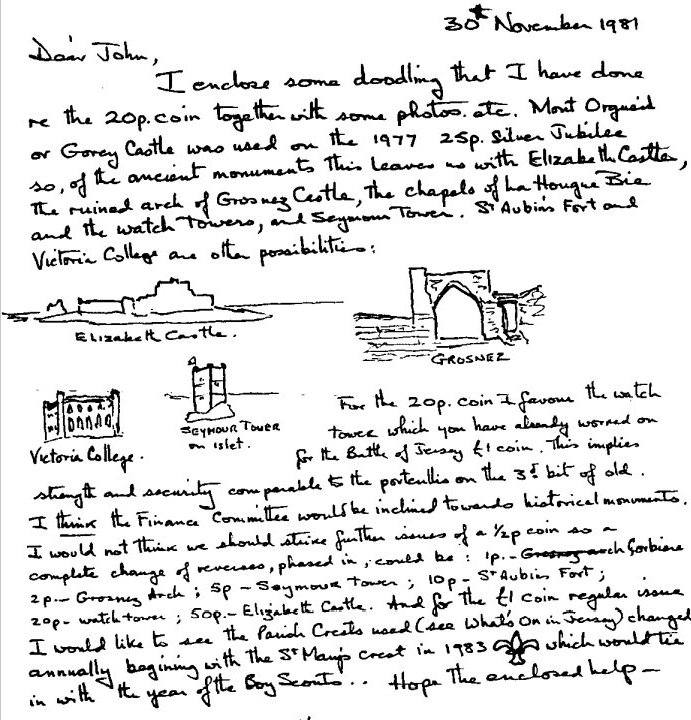 30th November 1981
Dear John,
I enclose some doodling that I have done
re the 20p. coin together with some photos. etc. Mont Orgueil
or Gorey Castle was used on the 1977 25p. Silver Jubilee
so, of the ancient monuments this leaves us with Elizabeth Castle,
the ruined arch of Grosnez Castle, the chapels of La Hougue Bie
and the watch Towers, and Seymour Tower. St Aubin's Fort and
Victoria College are other possibilities:
Elizabeth Castle.
GROSNEZ
Victoria College.
SEYMOUR TOWER
on islet.
For the 20p. coin I favour the watch
tower which you have already worked on
for the Battle of Jersey £1 coin. This implies
strength and security comparable to the portcullis on the 3d bit of old.
I think the Finance Committee would be inclined towards historical monuments.
I would not think we should strike further issues of a ½p coin so a
complete change of reverses, phased in, could be: 1p. - Grosnez arch Corbiere
2p. - Grosnez Arch; 5p - Seymour Tower; 10p - St Aubins Fort;
20p - watch tower; 50p. - Elizabeth Castle. And for the £1 coin regular issue
I would like to see the Parish Crests used (see What's On in Jersey) changed
annually begining with the St Marys crest in 1983 which would tie
in with the year of the Boy Scouts... Hope the enclosed help -